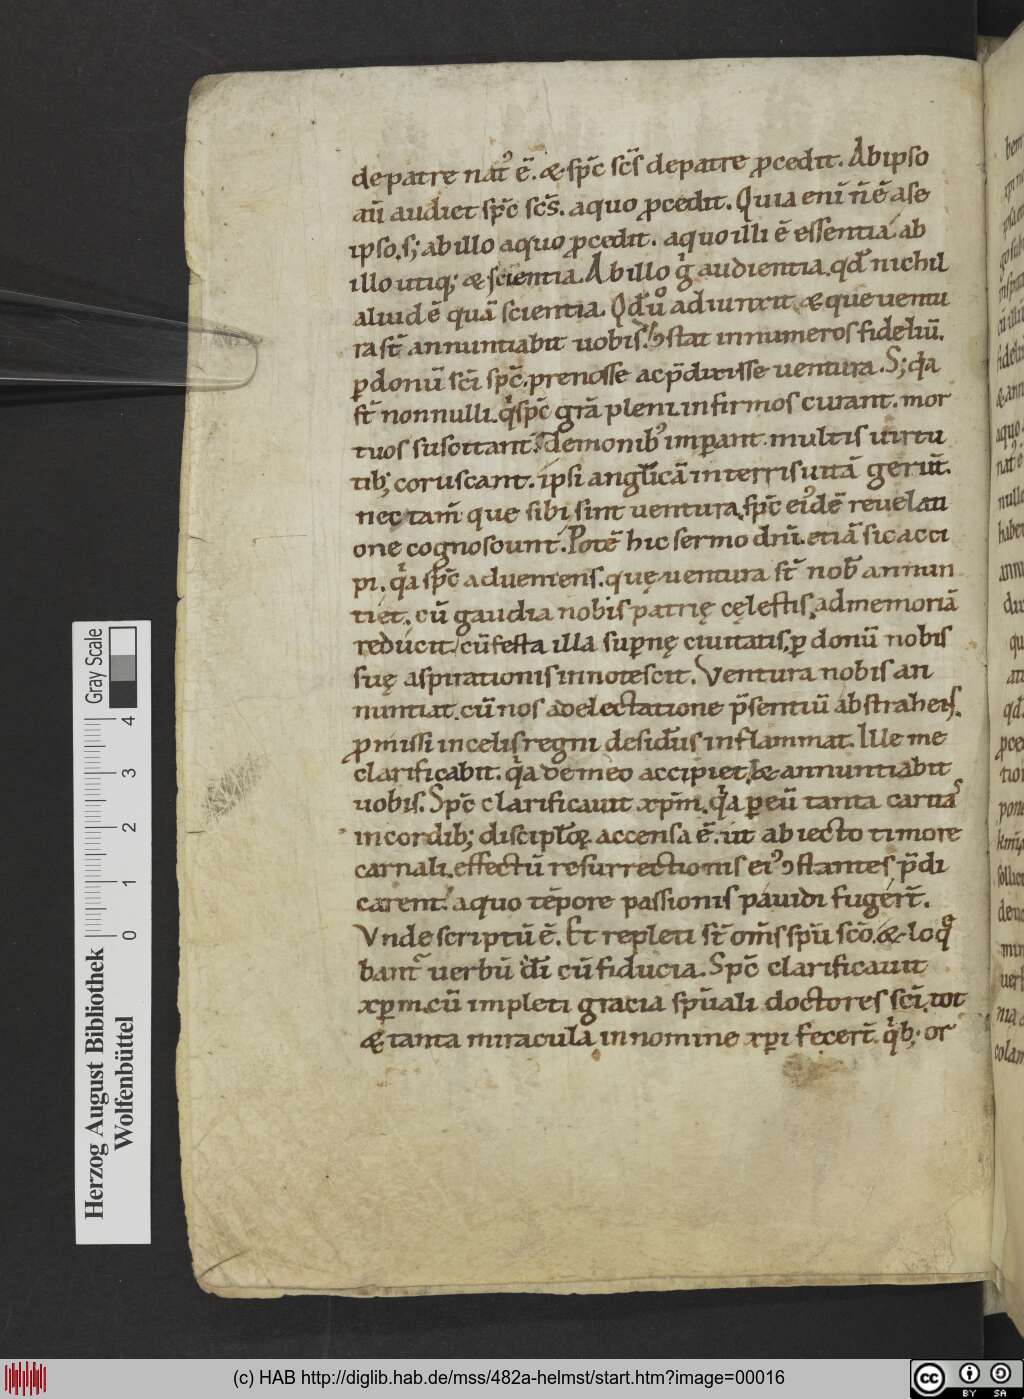 de patre nat᾿ ē. & sp̄c sc̄s de patre ꝓcedit. Ab ipso
aū audiet sp̄c sc̄s. a quo ꝓcedit. Quia enī n̄ ē a se
ipso. s; ab illo a quo ꝓcedit. a quo illi ē essentia. ab
illo utiq; & scientia. Ab illo g̊ audientia. qd̄ nichil
aliud ē quā scientia. Qd̄ ů adiunxit. & que uentu
ra st̄ annuntiabit uobis. ↄstat innumeros fideliū.
ꝑ donū sc̄i sp̄c. prenosse ac p̄dixisse uentura. S; qͥa
st̄ nonnulli. qͥ sp̄c gr̄a pleni. infirmos curant. mor
tuos suscitant. demonib᾿ imꝑant. multis uirtu
tib; coruscant. ipsi angl̄icā in terris uitā gerūt.
nec tam̄ que sibi sint uentura. sp̄c ei᾿dē reuelati
one cognoscunt. Potē hic sermo dn̄i. etiā sic acci
pi. qͥa sp̄c adueniens. quę uentura st̄ nob̄ annun
tiet. cū gaudia nobis patrię cęlestis. ad memoriā
reducit. cū festa illa suꝑnę ciuitatis. ꝑ donū nobis
suę aspirationis innotescit. Ventura nobis an
nuntiat. cū nos a delectatione p̄sentiū abstrahens.
ꝓmissi in celis regni desid̄iis inflammat. Ille me
clarificabit. qͥa de meo accipiet. & annuntiabit
uobis. Sp̄c clarificauit xp̄m. qͥa ꝑ eū tanta caritas
in cordib; discipl̄oꝝ accensa ē. ut abiecto timore
carnali. effectū resurrectionis ei᾿ ↄstantes p̄di
carent. a quo tēpore passionis pauidi fuger̄t.
Vnde scriptū ē. Et repleti st̄ om̄s sp̄u sc̄o. & loq̊
bant᾿ uerbū d̄i cū fiducia. Sp̄c clarificauit
xp̄m. cū impleti gracia sp̄uali doctores sc̄i. tot
& tanta miracula in nomine xp̄i fecer̄t. qͥb; or
Herzog August Bibliothek
Wolfenbüttel
Gray Scale
0 1 2 3 4
(c) HAB http://diglib.hab.de/mss/482a-helmst/start.htm?image=00016
cc BY SA